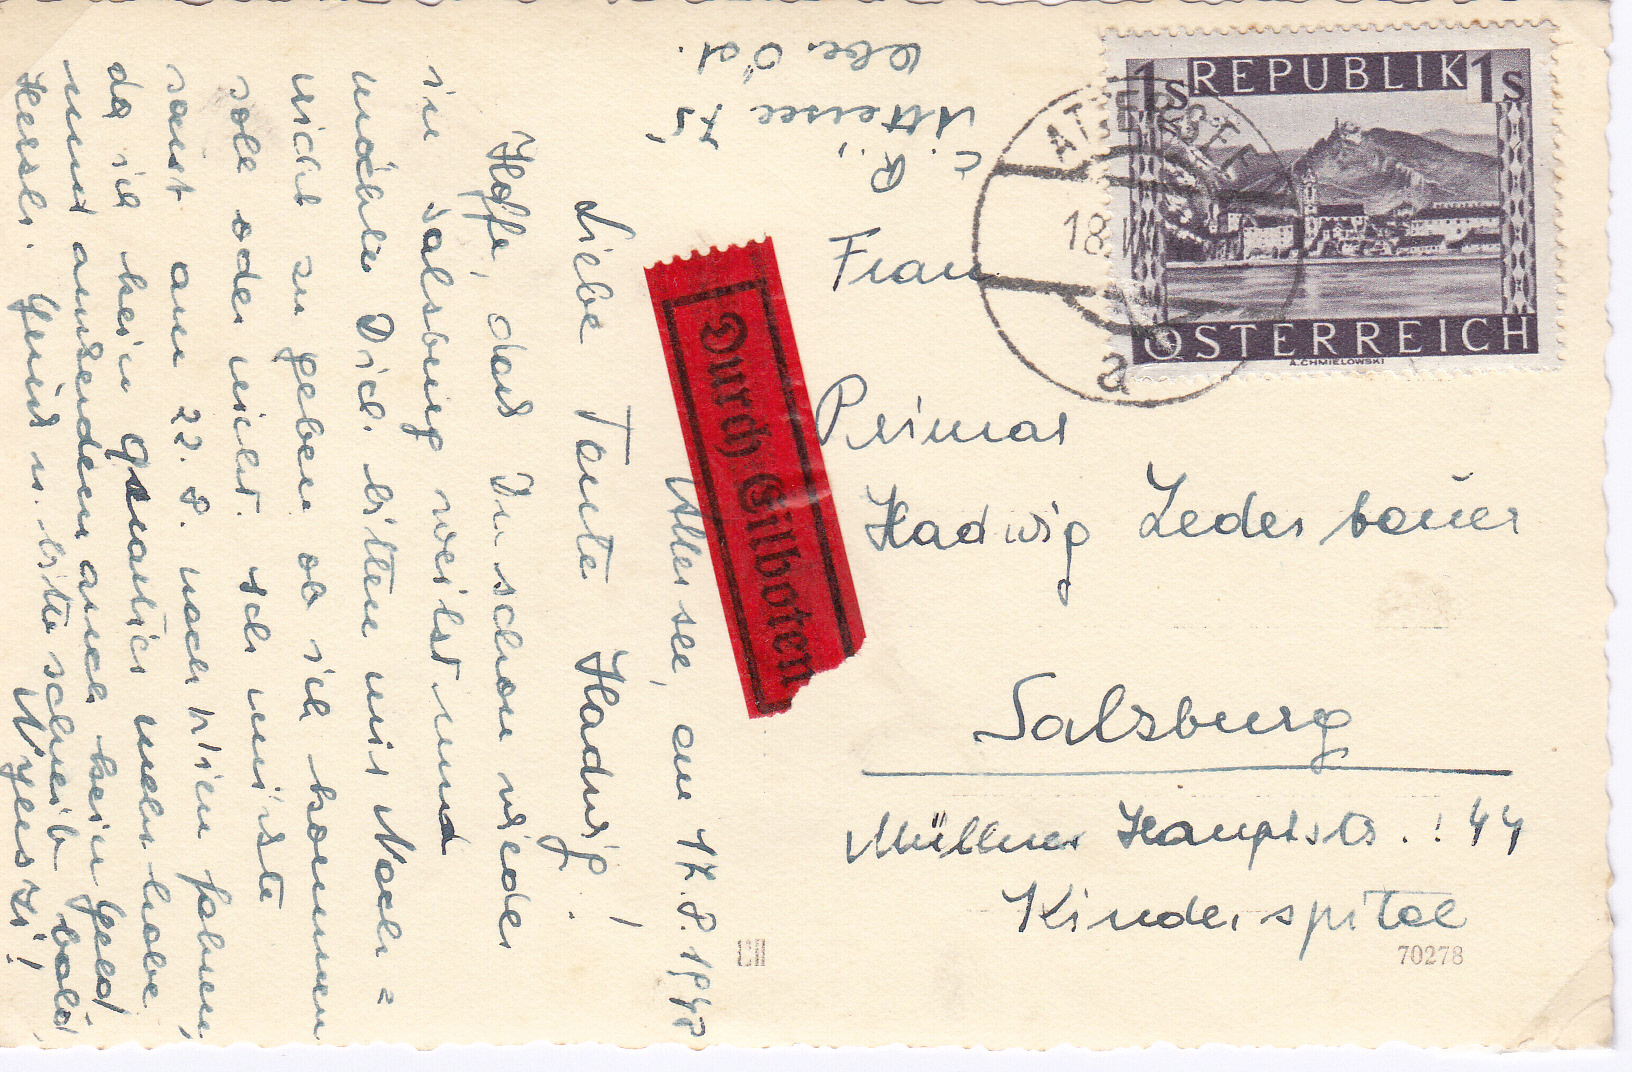 Attersee, am 17.8.1948
Liebe Tante Hadwig!
Hoffe, das Du schon wieder
in Salzburg weilst und
möchte Dich bitten mir Nach=
richt zu geben ob ich kommen
soll oder nicht. Ich müsste
sonst am 22.8. nach Wien fahren,
da ich kein Quartier mehr habe
und ausserdem auch kein Geld.
Herzl. Grüß u. bitte schreib bald,
REPUBLIK
1S 1S
ÖSTERREICH
A. CHMIELOWSKI
ATTERSEE
18.
a
Durch Eilboten
Attersee 75
Ober Öst.
Frau
Primar
Hadwig Lederbauer
Salzburg
Müllner Hauptstr. : 44
Kinderspital
70278